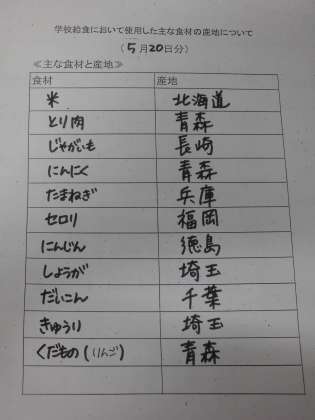 学校給食において使用した主な食材の産地について
(5月20日分)
≪主な食材と産地≫
食材 産地
米 北海道
とり肉 青森
じゃがいも 長崎
にんにく 青森
たまねぎ 兵庫
セロリ 福岡
にんじん 徳島
しょうが 埼玉
だいこん 千葉
きゅうり 埼玉
くだもの(りんご) 青森